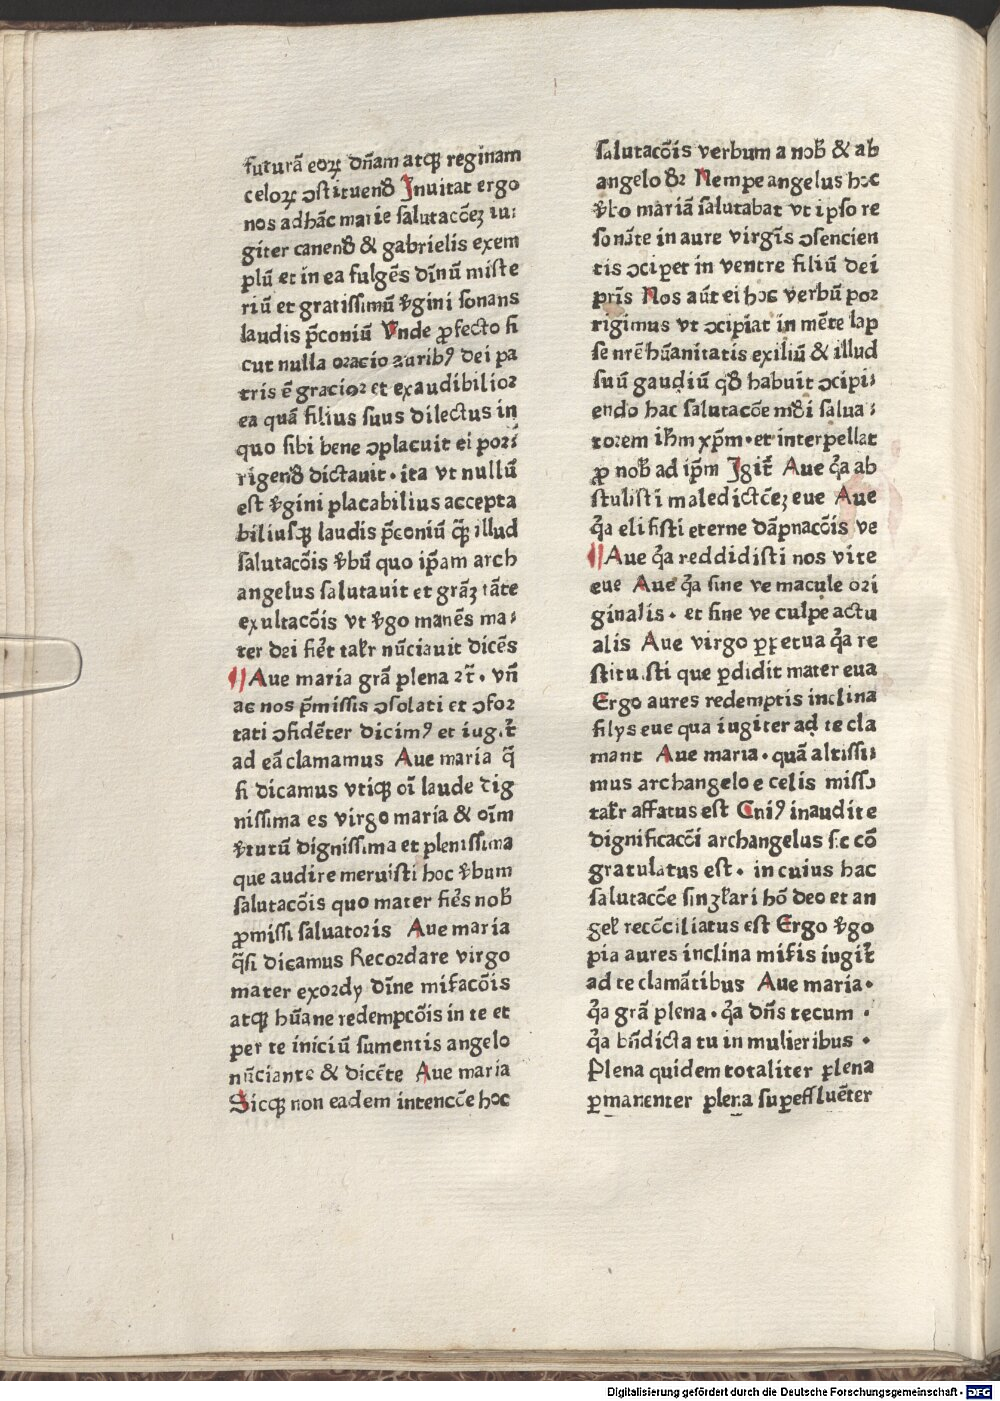 futurā eoꝝ dn̄am atqꝫ reginam
celoꝝ ꝯstituenđ Inuitat ergo
nos ad hāc marie salutacōeꝫ iu⸗
giter canenđ & gabrielis exem
plū et in ea fulgēs dīnū miste
riū et gratissimū v̄gini sonans
laudis p̄coniū Vnde ꝓfecto si
cut nulla oracio auribꝰ dei pa
tris ē gracior et exaudibilior
ea quā filius suus dilectus in
quo sibi bene ꝯplacuit ei pori⸗
rigenđ dictauit · ita vt nullū
est v̄gini placabilius accepta
biliusqꝫ laudis p̄coniū q̄ꝫ illud
salutacōis v̄bū quo ip̄am arch
angelus salutauit et grāꝫ tāte
exultacōis vt v̄go manēs ma⸗
ter dei fiet̄ tal̄r nūciauit dicēs
¶ Aue maria grā plena ⁊c̄ · vn̄
ac nos p̄missis ꝯsolati et ꝯfor
tati ꝯfidēter dicimꝰ et iugit̄
ad eā clamamus Aue maria q̄
si dicamus vtiqꝫ oī laude dig
nissima es virgo maria & oīm
v̄tutū dignissima et plenissima
que audire meruisti hoc v̄bum
salutacōis quo mater fies nob̄
ꝓmissi saluatoris Aue maria
q̄si dicamus Recordare virgo
mater exordy dīne mīacōis
atqꝫ hūane redempcōis in te et
per te iniciū sumentis angelo
nūciante & dicēte Aue maria
Sicqꝫ non eadem intencōe hoc
salutacōis verbum a nob̄ & ab
angelo đꝛ Nempe angelus hoc
v̄bo mariā salutabat vt ipso re
sonāte in aure virgīs ꝯsencien
tis ꝯciꝑet in ventre filiū dei
pr̄is Nos aūt ei hoc verbū por
rigimus vt ꝯcipiat in mēte lap
se nr̄e hūanitatis exiliū & illud
suū gaudiū qđ habuit ꝯcipi⸗
endo hac salutacōe mđi salua⸗
torem ih̄m xp̄m · et interpellat
ꝓ nob̄ ad ip̄m Igit̄ Aue q̄a ab
stulisti maledictōeꝫ eue Aue
q̄a elisisti eterne dāpnacōis ve
¶ Aue q̄a reddidisti nos vite
eue Aue q̄a sine ve macule ori
ginalis · et sine ve culpe actu
alis Aue virgo ꝑpetua q̄a re
stituisti que ꝑdidit mater eua
Ergo aures redemptis inclina
filys eue qua iugiter ad te cla
mant Aue maria · quā altissi⸗
mus archangelo e celis misso
tal̄r affatus est Cuiꝰ inaudite
dignificacōi archangelus sic cō
gratulatus est · in cuius hac
salutacōe singl̄ari hō deo et an
gel̄ recōciliatus est Ergo v̄go
pia aures inclina mīis iugit̄
ad te clamātibus Aue maria ·
q̄a grā plena · q̄a dn̄s tecum ·
q̄a bn̄dicta tu in mulieribus ·
Plena quidem totaliter plena
ꝑmanenter plena suꝑeffluēter
Digitalisierung gefördert durch die Deutsche Forschungsgemeinschaft - DFG